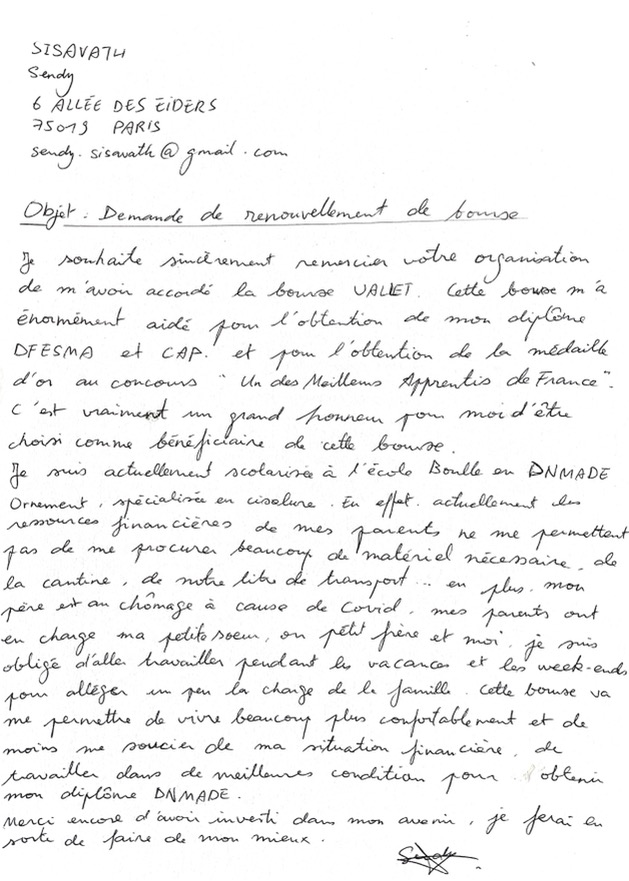 SISAVATH
Sendy
6 ALLÉE DES EIDERS
75019 PARIS
sendy.sisavath@gmail.com
Objet : Demande de renouvellement de bourse
Je souhaite sincèrement remercier votre organisation
de m'avoir accordé la bourse VALLET. Cette bourse m'a
énormément aidé pour l'obtention de mon diplôme
DFESMA et CAP. et pour l'obtention de la médaille
d'or au concours " Un des Meilleurs Apprentis de France".
C'est vraiment un grand honneur pour moi d'être
choisi comme bénéficiaire de cette bourse.
Je suis actuellement scolarisée à l'école Boulle en DNMADE
Ornement, spécialisée en ciselure. En effet, actuellement les
ressources financières de mes parents ne me permettent
pas de me procurer beaucoup de matériel nécessaire, de
la cantine, de notre titre de transport... en plus, mon
père est au chômage à cause de Covid, mes parents ont
en charge ma petite soeur, on petit frère et moi, je suis
obligé d'aller travailler pendant les vacances et les week-ends
pour alléger un peu la charge de la famille. Cette bourse va
me permettre de vivre beaucoup plus confortablement et de
moins me soucier de ma situation financière, de
travailler dans de meilleures condition pour obtenir
mon diplôme DNMADE.
Merci encore d'avoir investi dans mon avenir, je ferai en
sorte de faire de mon mieux.
Sendy